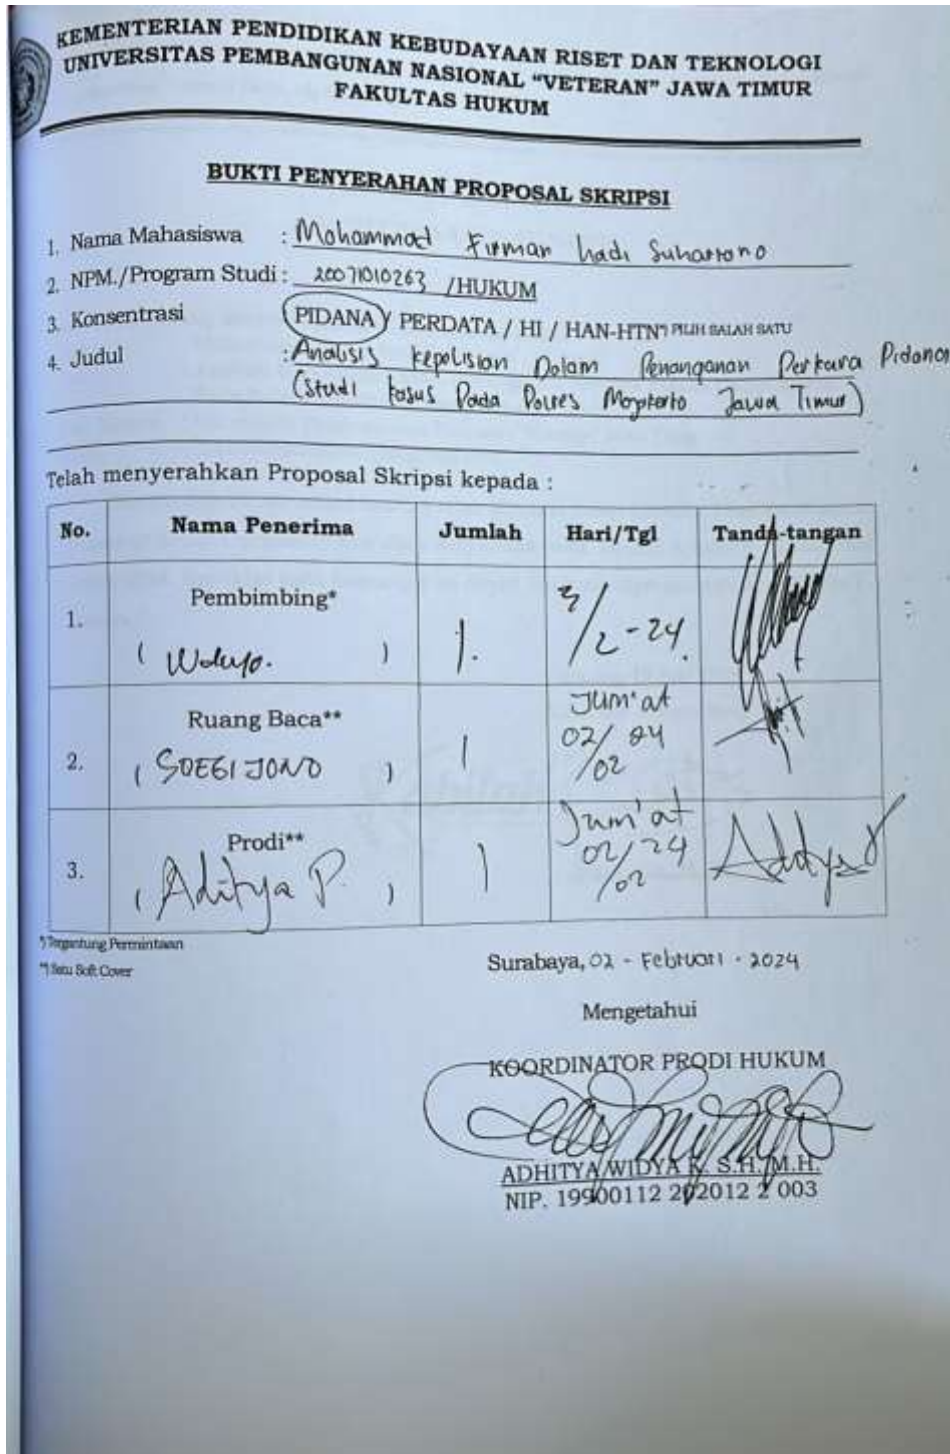 KEMENTERIAN PENDIDIKAN KEBUDAYAAN RISET DAN TEKNOLOGI
UNIVERSITAS PEMBANGUNAN NASIONAL "VETERAN" JAWA TIMUR
FAKULTAS HUKUM
BUKTI PENYERAHAN PROPOSAL SKRIPSI
1. Nama Mahasiswa : Mohammad Firman hadi Suhartono
2. NPM./Program Studi : 20071010263 /HUKUM
3. Konsentrasi PIDANA / PERDATA / HI / HAN-HTN*) PILIH SALAH SATU
4. Judul : Analisis kepolisian Dalam Penanganan Perkara Pidana
(Studi kasus Pada Polres Mojokerto Jawa Timur)
Telah menyerahkan Proposal Skripsi kepada :
No. Nama Penerima Jumlah Hari/Tgl Tanda-tangan
1. Pembimbing* 1. 2-24.
2. Ruang Baca** ( SOEGIJONO ) 1 Jum'at 02/02 24
3. Prodi** ( Aditya P. ) 1 Jum'at 02/02 24
*) Tergantung Permintaan
**) Satu Soft Cover
Surabaya, 02 - Februari - 2024
Mengetahui
KOORDINATOR PRODI HUKUM
ADHITYA WIDYA K. S.H., M.H.
NIP. 19900112 202012 2 003